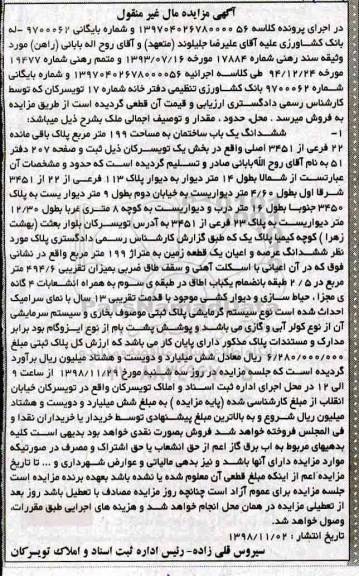 آگهی مزایده مال غیر منقول
در اجرای پرونده کلاسه ۵۶ ۱۳۹۷۰۴۰۲۶۷۸۰۰۰۰ و شماره بایگانی ۹۷۰۰۰۶۲ -له
بانک کشاورزی علیه آقای علیرضا جلیلوند (متعهد) و آقای روح اله بابانی (راهن) مورد
وثیقه سند رهنی شماره ۱۷۸۸۴ مورخه ۱۳۹۳/۰۷/۱۶ و متمم رهنی شماره ۱۹۴۷۷
مورخه ۹۴/۱۲/۲۴ طی کلاسه اجرائیه ۱۳۹۷۰۴۰۲۶۷۸۰۰۰۰۵۶ و شماره بایگانی
شماره ۹۷۰۰۰۶۲ بانک کشاورزی تنظیمی دفتر خانه شماره ۱۷ تویسرکان که توسط
کارشناس رسمی دادگستری ارزیابی و قیمت آن قطعی گردیده است از طریق مزایده
به فروش میرسد . محل، حدود ، مقدار و توصیف اجمالی ملک بشرح ذیل میباشد:
۱- ششدانگ یک باب ساختمان به مساحت ۱۹۹ متر مربع پلاک باقی مانده
۲۲ فرعی از ۳۴۵۱ اصلی واقع در بخش یک تویسرکان ذیل ثبت و صفحه ۲۰۷ دفتر
۵۱ به نام آقای روح الله بابانی صادر و تسلیم گردیده است که حدود و مشخصات آن
عبارتست از شمالا بطول ۱۴ متر دیوار به دیوار پلاک ۱۱۳ فرعی از ۲۲ از ۳۴۵۱
شرقا اول بطول ۴/۶۰ متر دیواریست به خیابان دوم بطول ۹ متر دیوار یست به پلاک
۳۴۵۰ جنوبا بطول ۱۶ متر درب و دیواریست به کوچه ۸ متری غربا بطول ۱۲/۳۰
متر دیواریست به پلاک ۲۳ فرعی از ۳۴۵۱ به آدرس تویسرکان بلوار بعثت (بهشت
زهرا ) کوچه کیمیا پلاک یک که طبق گزارش کارشناس رسمی دادگستری پلاک مورد
نظر ششدانگ عرصه و اعیان یک قطعه زمین به متراژ ۱۹۹ متر مربع واقع در نشانی
فوق که در آن اعیانی با اسکلت آهنی و سقف طاق ضربی بمیزان تقریبی ۴۹۴/۶ متر
مربع در ۲/۵ طبقه بانضمام یکباب اطاق در طبقه ی سوم به همراه انشعابات ۴ گانه
ی مجزا ، حیاط سازی و دیوار کشی موجود با قدمت تقریبی ۱۳ سال با نمای سرامیک
احداث شده است نوع سیستم گرمایشی پلاک ثبتی موصوف بخاری و سیستم سرمایشی
آن از نوع کولر آبی و گازی می باشد و پوشش پشت بام از نوع ایزوگام بود برابر
مدارک و مستندات پلاک مذکور دارای پایان کار می باشد که ارزش کل پلاک ثبتی مبلغ
۶/۲۸۰/۰۰۰/۰۰۰ ریال معادل شش میلیارد و دویست و هشتاد میلیون ریال برآورد
گردیده است که جلسه مزایده در روز سه شنبه مورخ ۱۳۹۸/۱۱/۲۹ از ساعت ۹
الی ۱۲ در محل اجرای اداره ثبت اسناد و املاک تویسرکان واقع در تویسرکان خیابان
انقلاب از مبلغ کارشناسی شده (پایه مزایده ) به مبلغ شش میلیارد و دویست و هشتاد
میلیون ریال شروع و به بالاترین مبلغ پیشنهادی توسط خریدار یا خریداران نقدا و
فی المجلس فروخته خواهد شد فروش بصورت نقدی خواهد بود بدیهی است کلیه
بدهیهای مربوط به آب برق گاز اعم از حق انشعاب یا حق اشتراک و مصرف در صورتیکه
موارد مزایده دارای آنها باشد و نیز بدهی مالیاتی و عوارض شهرداری و ... تا تاریخ
مزایده اعم از اینکه مبلغ قطعی آن معلوم شده یا نشده باشد بعهده برنده مزایده است
جلسه مزایده برای عموم آزاد است چنانچه روز مزایده مصادف با تعطیل باشد روز بعد
از تعطیلی مزایده در همان محل انجام خواهد شد و هزینه های اجرایی طبق مقررات،
وصول خواهد شد.
تاریخ انتشار : ۱۳۹۸/۱۱/۰۲
سیروس قلی زاده- رئیس اداره ثبت اسناد و املاک تویسرکان